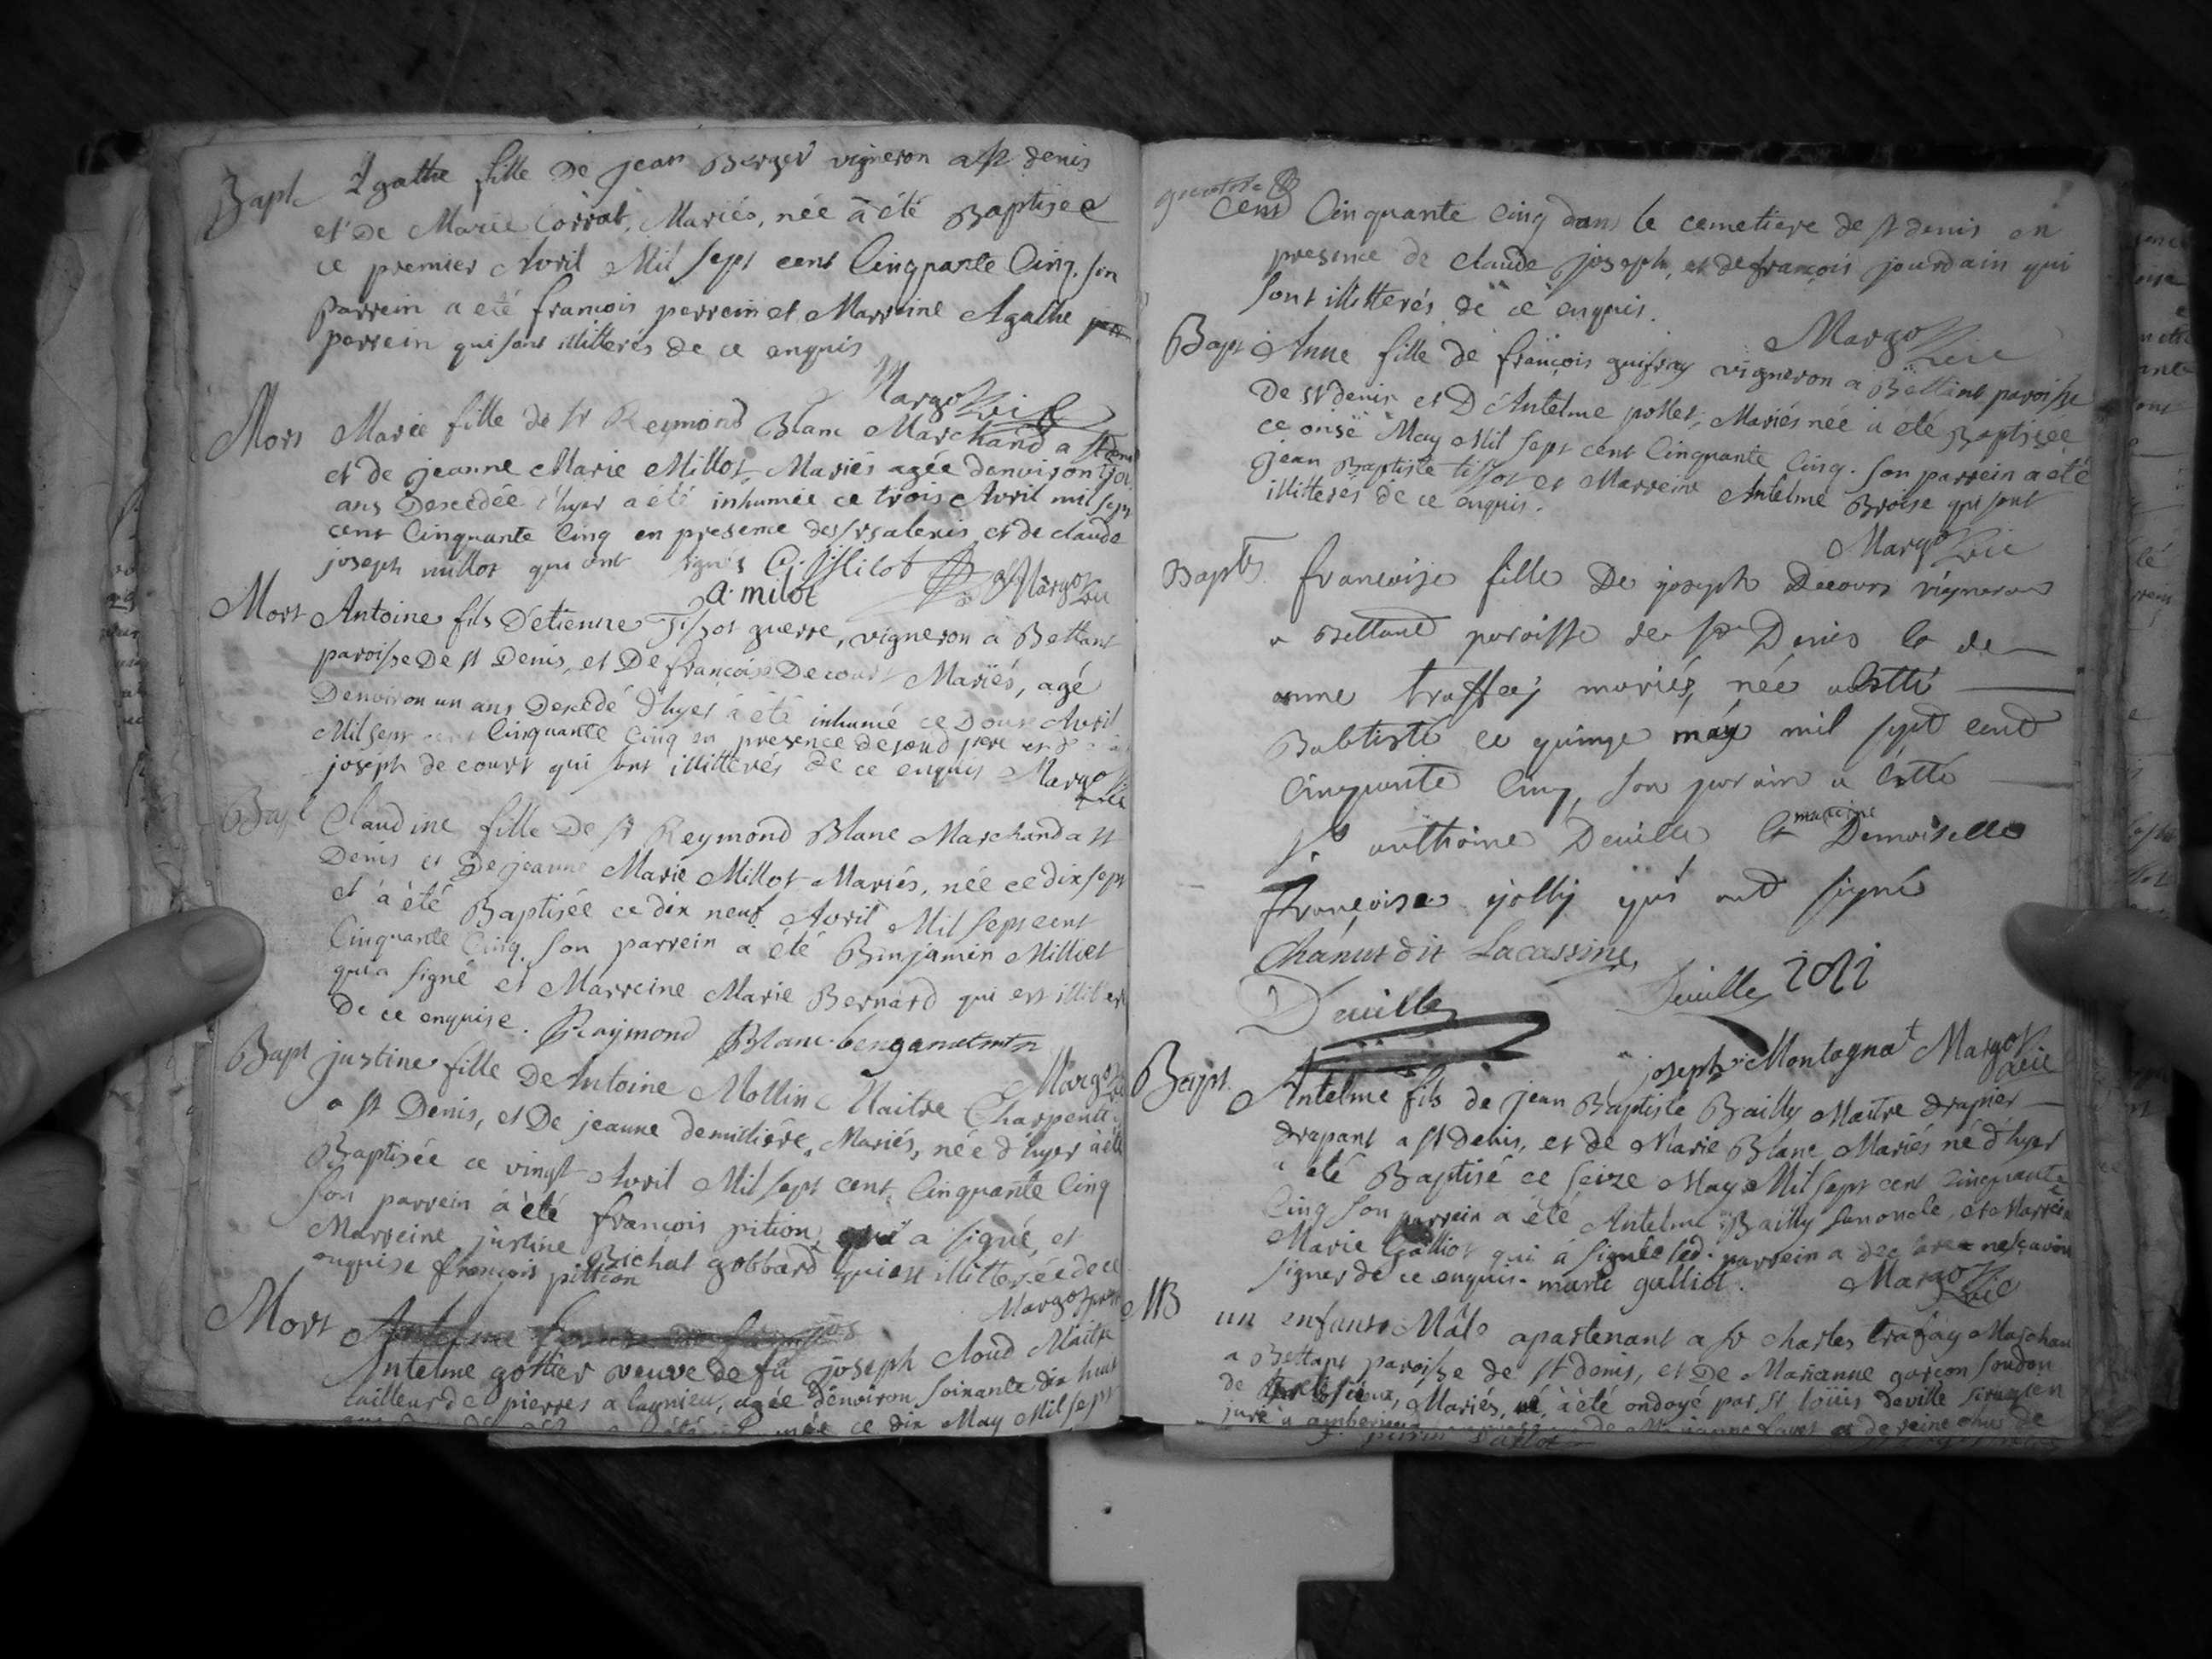 Bapt Agathe fille De jean Berger vigneron a st denis
et De Marie Corrat, Mariés, née a été Baptisée
ce premier Avril Mil sept cent Cinquante Cinq. son
parrein a été francois perrein et Marreine Agathe
perrein qui sont illitterés de ce enquis
Margo
Mort Marie fille de sr Reymond Blanc Marchand a st Denis
et de jeanne Marie Millot, Mariés agée denviron trois
ans Descedée d'hyer a été inhumée ce trois Avril mil sept
cent Cinquante Cinq en presence des et de claude
joseph millot qui ont signés C. j Milot
a. milot
Mort Antoine fils D'etienne Tissot guerre, vigneron a Bettant
paroisse De st Denis, et De francoise Decourt Mariés, agé
Denviron un ans Descedé d'hyer a été inhumé ce Avril
Mil sept cent Cinquante Cinq en presence de
joseph decourt qui sont illitterés de ce enquis
Bapt Claudine fille De sr Reymond Blanc Marchand a st
Denis et De jeanne Marie Millot Mariés, née ce dix sept
et à été Baptisée ce dix neuf Avril Mil sept cent
Cinquante Cinq. son parrein a été Binjamin Milliet
qui a signé et Marreine Marie Bernard qui est
De ce enquise. Raymond Blanc
Bapt justine fille De Antoine Mollin Maitre Charpentier
a st Denis, et De jeanne demilliére, Mariés, née d'hyer à été
Baptisée ce vingt Avril Mil sept cent Cinquante Cinq
son parrein à été françois pition qui a signé, et
Marreine justine Bichat gobbard qui est illitterée de ce
enquise françois pittion
Mort
Antelme gottier veuve de fû joseph Cloud Maitre
tailleur de pierres a lagnieu, agée denviron soixante dix huit
ce dix May Mil sept
cent Cinquante Cinq dans le cemetiere de st denis en
presence de claude joseph, et de françois jourdain qui
sont illitterés de ce enquis.
Bapt Anne fille de françois guifray vigneron a Bettant paroisse
De st denis et D'Antelme pollet, Mariés née à été Baptisée
ce onse May Mil sept cent Cinquante Cinq. son parrein a été
jean Baptiste tissot et Marreine Antelme Broise qui sont
illitterés de ce enquis.
Bapt francoise fille De joseph Decourt vigneron
a Bettant paroisse de st Denis et de
anne traffey mariés, née
Babtisté ce quinze may mil sept cent
Cinquante Cinq, son parain a
sr anthoine Deville et maraine Demoiselle
françoise jolly qui ont signé
Chanut dit Lacassine
Deville Deville
joseph Montagnat
Bapt. Antelme fils de jean Baptiste Bailly Maitre drapier
drapant a st denis, et de Marie Blanc Mariés né d'hyer
a été Baptisé ce seize May Mil sept cent cinquante
Cinq son parrein a été Antelme Bailly son oncle, et Marreine
Marie Galliot qui à signée led. parrein a declaré ne sçavoir
signer de ce enquis. marie galliot.
un enfant Mâle apartenant a sr charles trafay Marchand
a Bettant paroisse de st denis, et De Marianne garçon
de Mariés, à été ondoyé par sr loüis deville
juré a amberieu